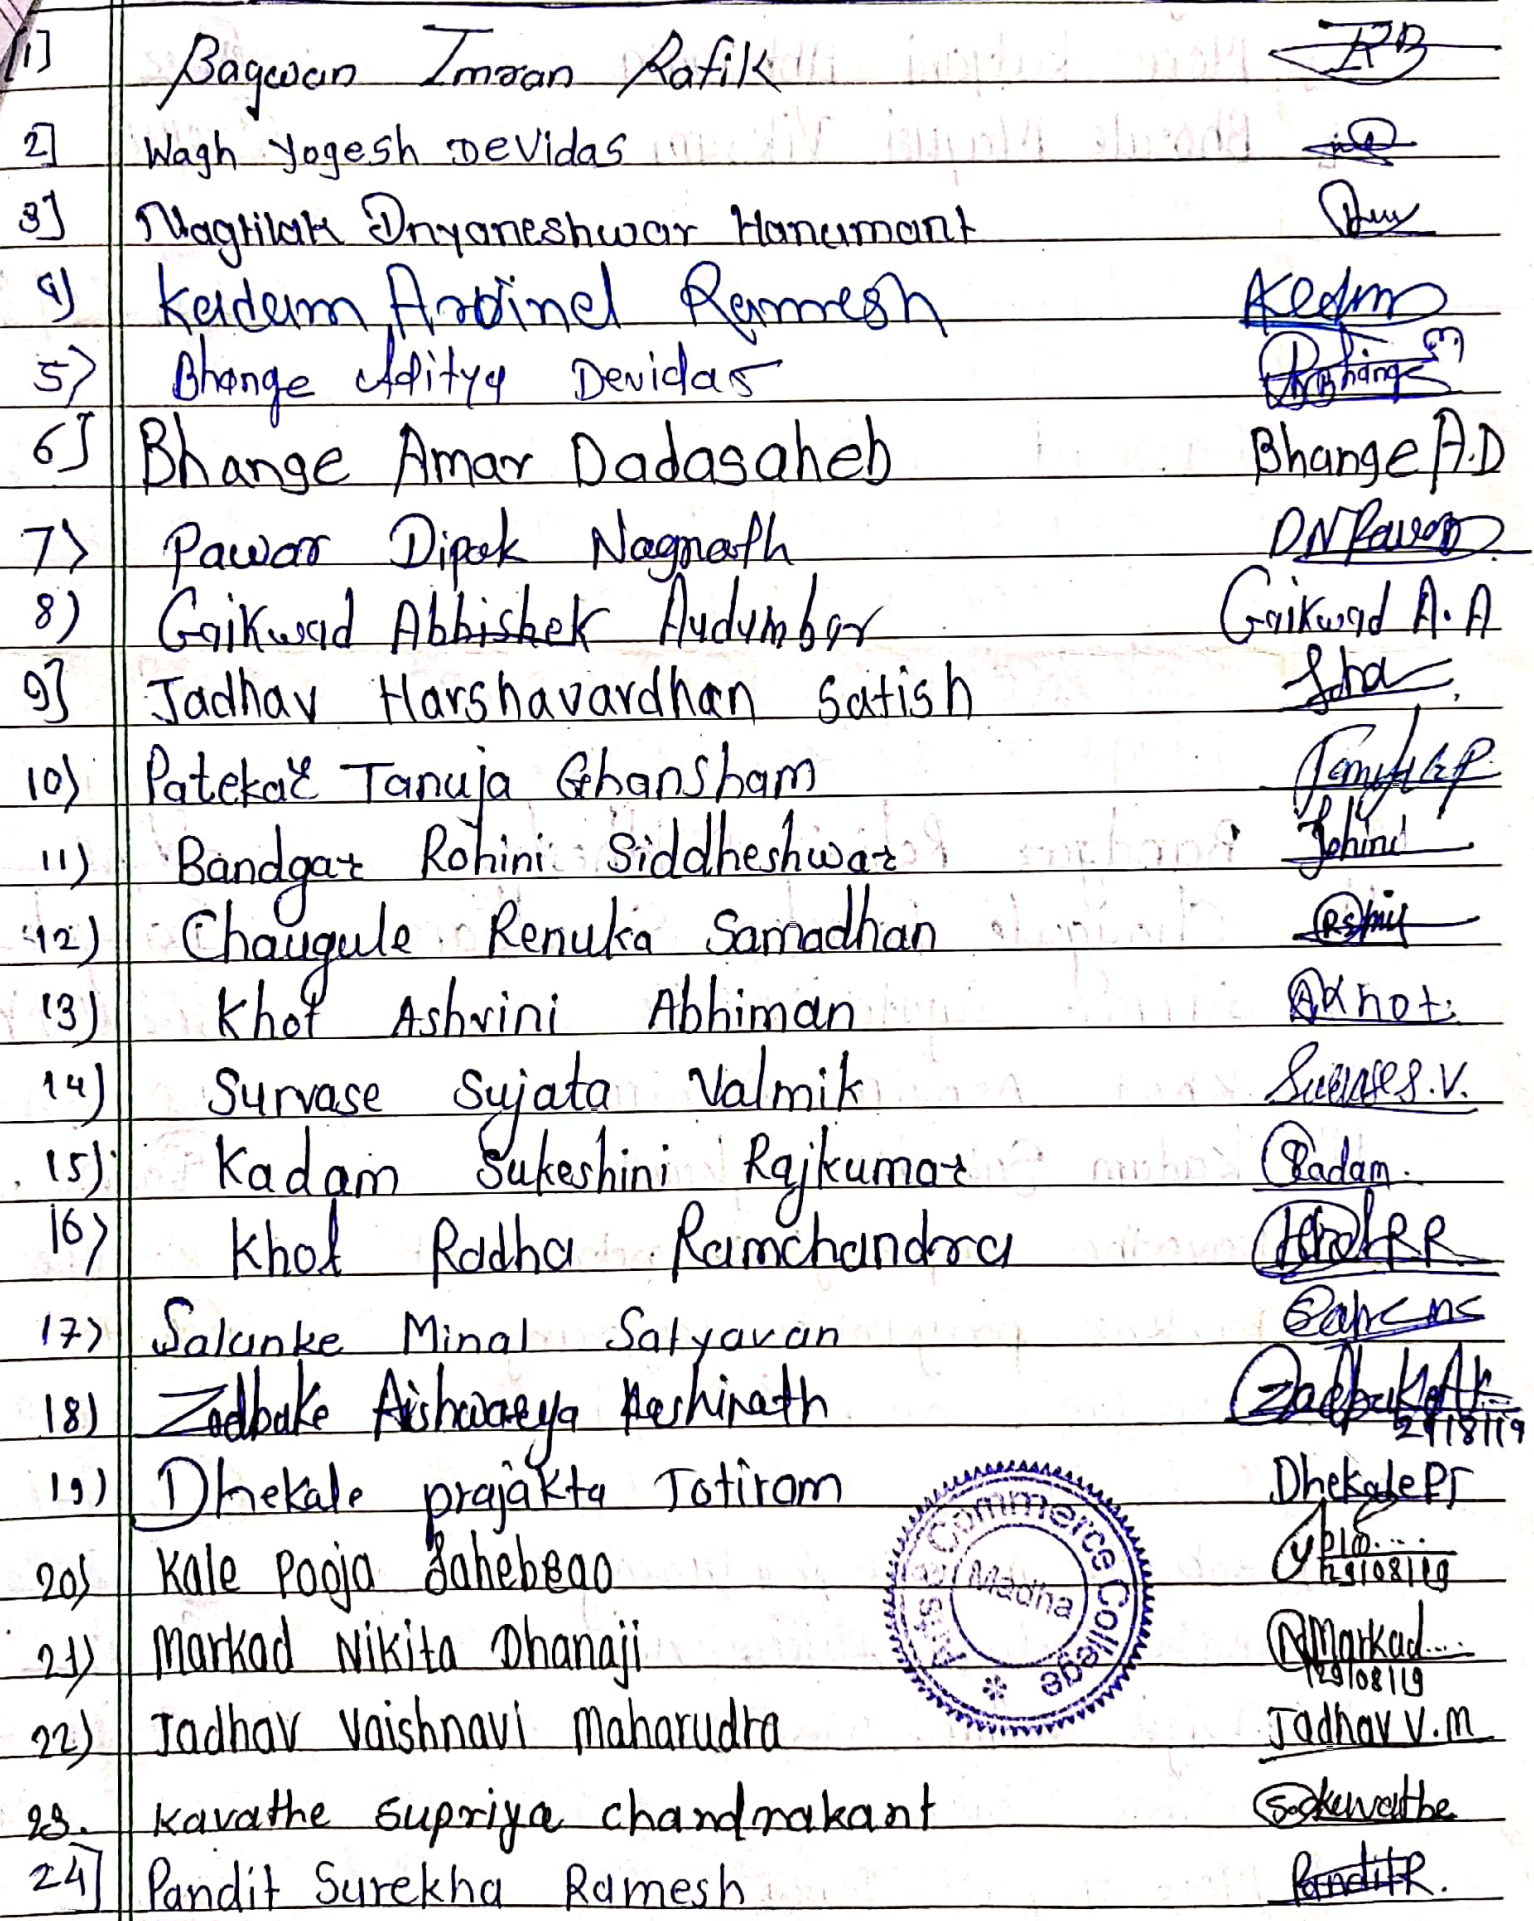 1] Bagwan Imran Rafik IRB
2] Wagh Yogesh Devidas
3] Nagtilak Dnyaneshwar Hanumant
4) Kadam Ramesh
5) Bhange Aditya Devidas Bhange
6] Bhange Amar Dadasaheb Bhange A.D
7) Pawar Dipak Nagnath DNPawar
8) Gaikwad Abhishek Audumbar Gaikwad A.A
9] Jadhav Harshavardhan Satish
10) Patekar Tanuja Ghansham
11) Bandgar Rohini Siddheshwar Rohini
12) Chaugule Renuka Samadhan
13) Khot Ashvini Abhiman AKhot.
14) Survase Sujata Valmik Survase S.V.
15) Kadam Sukeshini Rajkumar Kadam.
16) Khot Radha Ramchandra Khot R R
17) Salunke Minal Satyavan
18) Zadbuke Aishwarya Kashinath Zadbuke A K
29/8/19
19) Dhekale prajakta Jotiram Dhekale PJ
20) Kale Pooja Sahebrao
29/08/19
21) Markad Nikita Dhanaji NMarkad....
29/08/19
Arts & Commerce College
Madha
22) Jadhav Vaishnavi Maharudra Jadhav V.M
23. Kavathe Supriya Chandrakant Sckavathe
24] Pandit Surekha Ramesh PanditR.